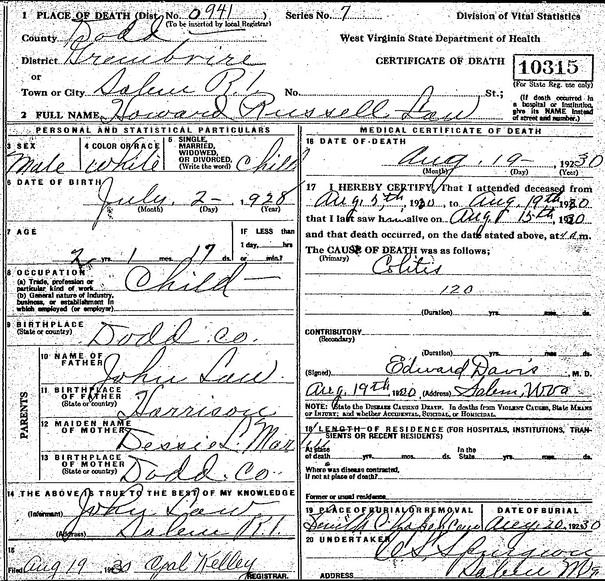 1 PLACE OF DEATH (Dist. No. 0941) Series No. 7 Division of Vital Statistics
(To be inserted by local Registrar)
County Dodd West Virginia State Department of Health
District CERTIFICATE OF DEATH 10315
or (For State Reg. use only)
Town or City Salem R.1 No. St.;
(If death occurred in a hospital or institution, give its NAME instead of street and number.)
2 FULL NAME Howard Russell Law
PERSONAL AND STATISTICAL PARTICULARS
3 SEX Male
4 COLOR OR RACE White
5 SINGLE, MARRIED, WIDOWED, OR DIVORCED, (Write the word) Child
6 DATE OF BIRTH July 2- 1928
(Month) (Day) (Year)
7 AGE 2 yrs. 1 mos. 17 ds.
IF LESS than 1 day, hrs or min.?
8 OCCUPATION Child
(a) Trade, profession or particular kind of work
(b) General nature of industry, business, or establishment in which employed (or employer)
9 BIRTHPLACE Dodd Co.
(State or country)
PARENTS
10 NAME OF FATHER John Law
11 BIRTHPLACE OF FATHER Harrison
(State or country)
12 MAIDEN NAME OF MOTHER Dessie L.
13 BIRTHPLACE OF MOTHER Dodd Co.
(State or country)
14 THE ABOVE IS TRUE TO THE BEST OF MY KNOWLEDGE
(Informant) John Law
(Address) Salem R.1
15
Filed Aug 19 1930 Kelley
REGISTRAR.
MEDICAL CERTIFICATE OF DEATH
16 DATE OF DEATH
Aug. 19- 1930
(Month) (Day) (Year)
17 I HEREBY CERTIFY, That I attended deceased from
Aug. 5th, 1930, to Aug. 19th, 1930
that I last saw him alive on Aug 15th, 1930
and that death occurred, on the date stated above, at m.
The CAUSE OF DEATH was as follows;
(Primary) Colitis
120
(Duration) yrs. mos. ds.
CONTRIBUTORY
(Secondary)
(Duration) yrs. mos. ds.
(Signed) Edward Davis, M. D.
Aug. 19th, 1930 (Address) Salem, W.Va
NOTE: State the DISEASE CAUSING DEATH. In deaths from VIOLENT CAUSES, State MEANS OF INJURY; and whether ACCIDENTAL, SUICIDAL, or HOMICIDAL.
18 LENGTH OF RESIDENCE (FOR HOSPITALS, INSTITUTIONS, TRANSIENTS OR RECENT RESIDENTS)
At place of death yrs. mos. ds. In the State yrs. mos. ds.
Where was disease contracted, if not at place of death?
Former or usual residence
19 PLACE OF BURIAL OR REMOVAL DATE OF BURIAL
Chapel Aug. 20, 1930
20 UNDERTAKER
Spurgeon
Salem W Va